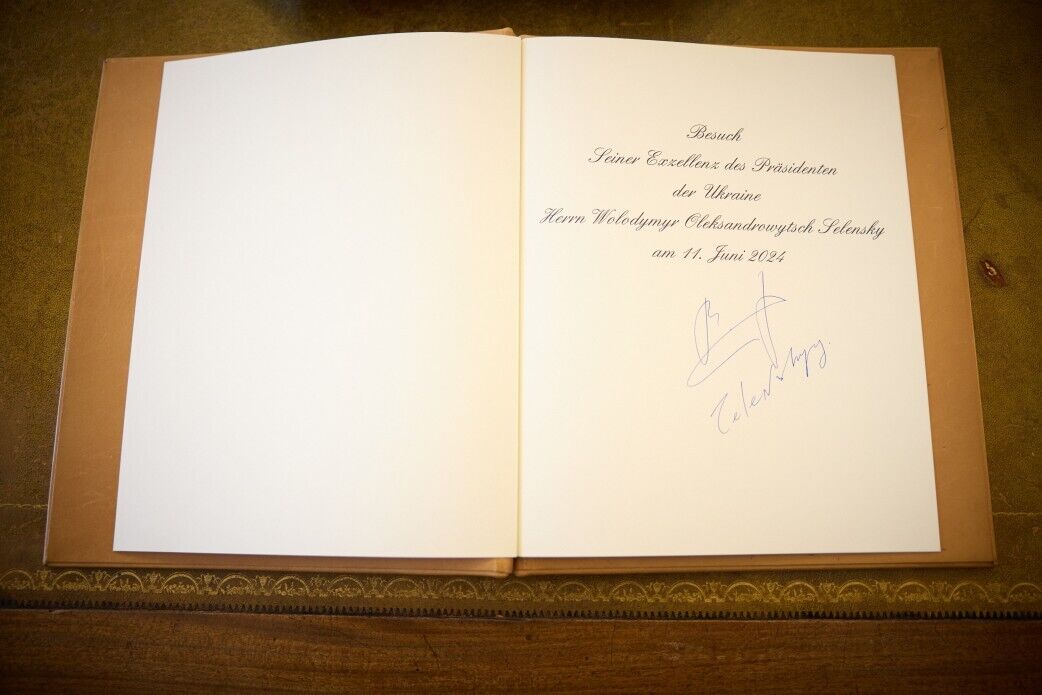 Besuch
Seiner Exzellenz des Präsidenten
der Ukraine
Herrn Wolodymyr Oleksandrowytsch Selensky
am 11. Juni 2024
Zelenskyy.